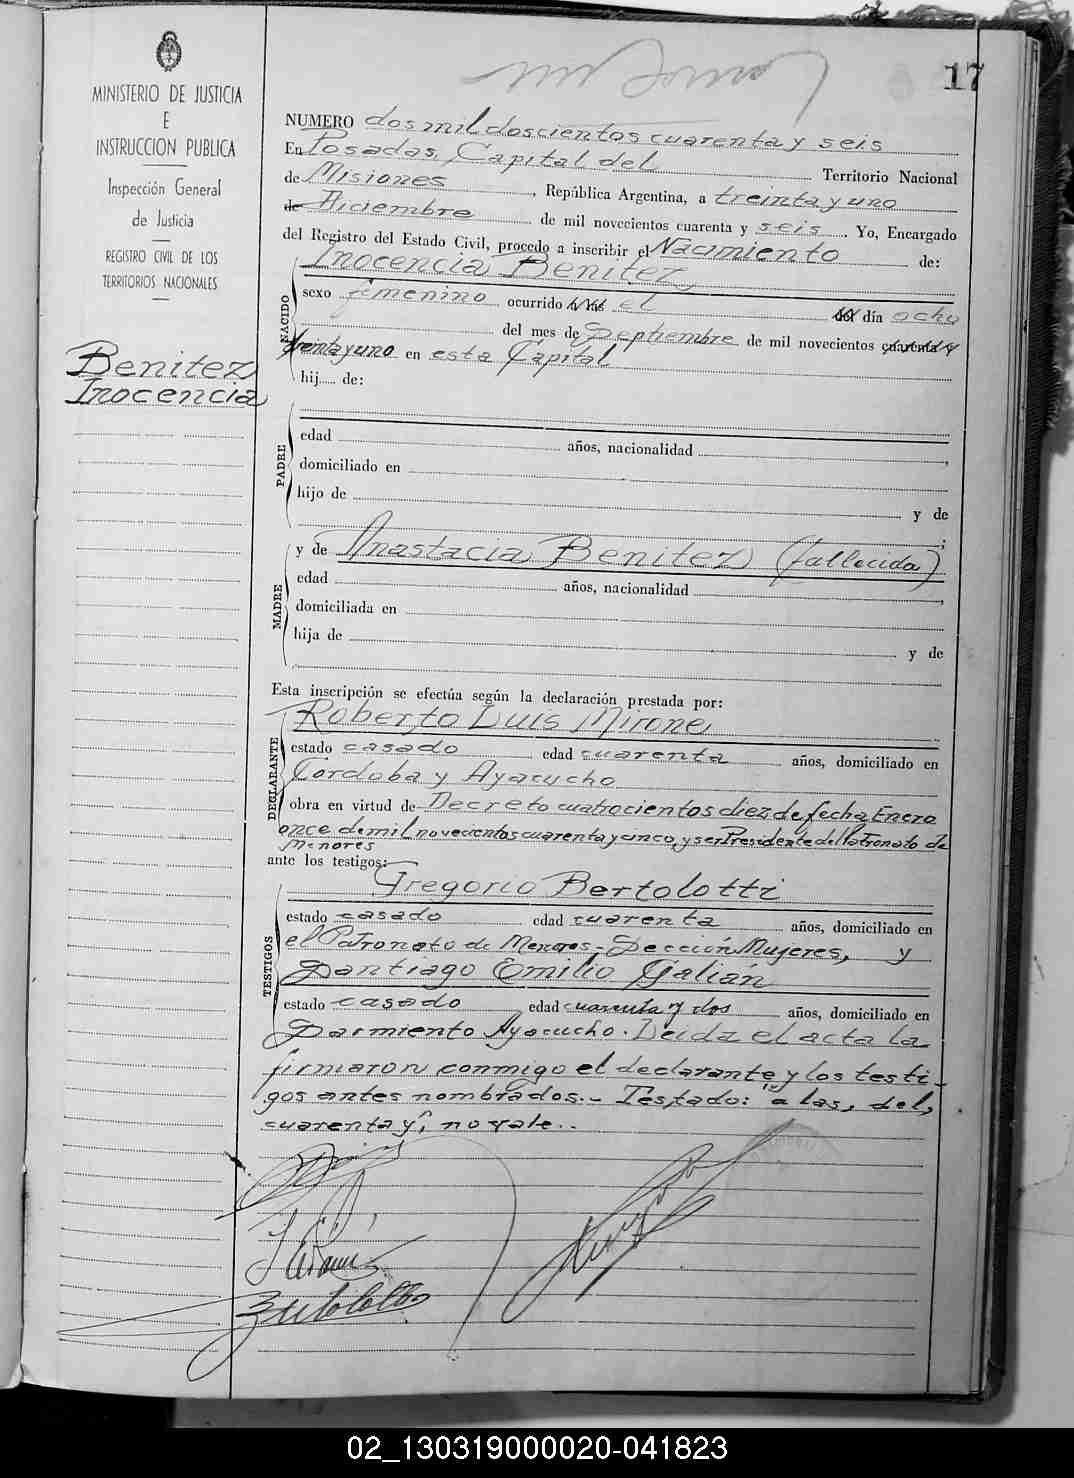 17
MINISTERIO DE JUSTICIA
E
INSTRUCCION PUBLICA
Inspección General
de Justicia
REGISTRO CIVIL DE LOS
TERRITORIOS NACIONALES
Benitez
Inocencia
NUMERO dos mil doscientos cuarenta y seis
En Posadas, Capital del Territorio Nacional
de Misiones, República Argentina, a treinta y uno
de Diciembre de mil novecientos cuarenta y seis. Yo, Encargado
del Registro del Estado Civil, procedo a inscribir el Nacimiento de:
NACIDO
Inocencia Benitez
sexo femenino ocurrido a las el del día ocho
del mes de Septiembre de mil novecientos cuarenta y
treinta y uno en esta Capital
hij de:
PADRE
edad años, nacionalidad ,
domiciliado en
hijo de y de
;
MADRE
y de Anastacia Benitez (fallecida)
edad años, nacionalidad ,
domiciliada en
hija de y de
Esta inscripción se efectúa según la declaración prestada por:
DECLARANTE
Roberto Luis Mirone
estado casado edad cuarenta años, domiciliado en
Cordoba y Ayacucho
obra en virtud de Decreto cuatrocientos diez de fecha Enero
once de mil novecientos cuarenta y cinco, y ser Presidente del Patronato de
Menores
ante los testigos:
TESTIGOS
Gregorio Bertolotti
estado casado edad cuarenta años, domiciliado en
el Patronato de Menores - Sección Mujeres, y
Santiago Emilio Galian
estado casado edad cuarenta y dos años, domiciliado en
Sarmiento Ayacucho. Leida el acta la
firmaron conmigo el declarante y los testi-
gos antes nombrados.- Testado: a las, del,
cuarenta y, no vale..
02_130319000020-041823